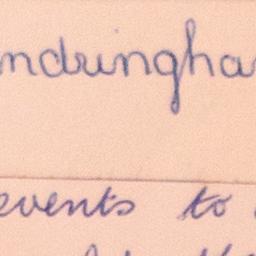 ndringha
events to